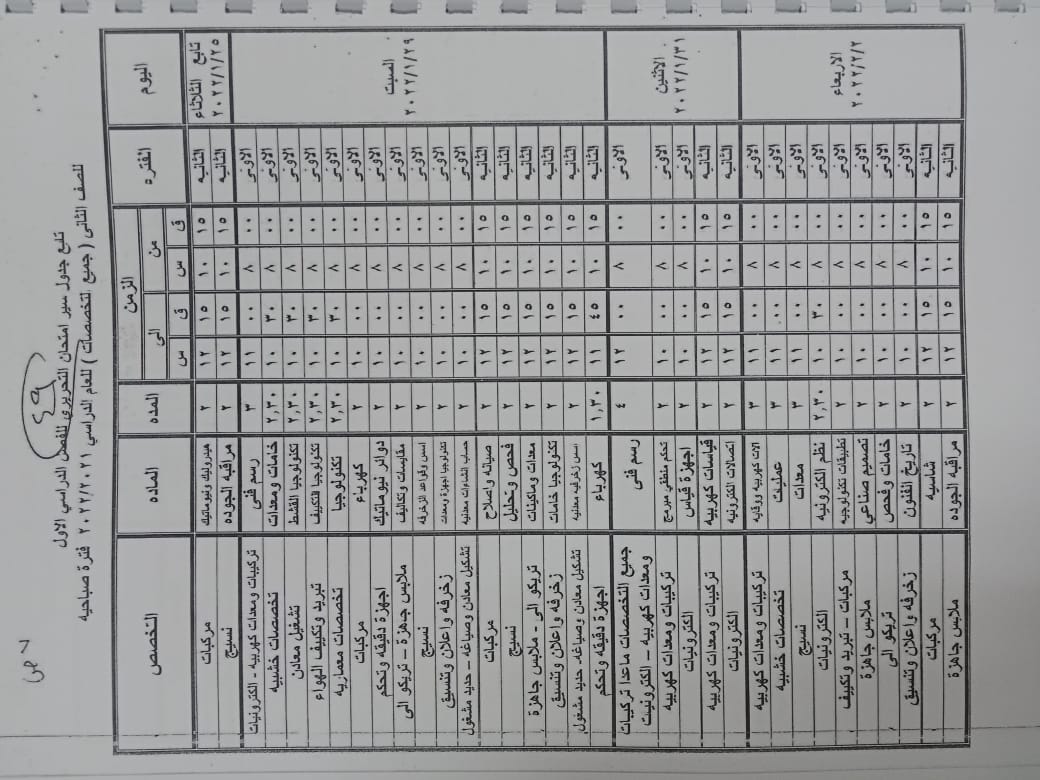 ص ٧
٤٩
تابع جدول سير امتحان التحريرى للفصل الدراسي الاول
للصف الثانى ( جميع التخصصات ) للعام الدراسي ٢٠٢٢/٢٠٢١ فترة صباحيه
اليوم الفتره الزمن المده الماده التخصص
من الى
ق س ق س
تابع الثلاثاء ٢٠٢٢/١/٢٥
الثانيه ١٥ ١٠ ١٥ ١٢ ٢ هيدروليك ونيوماتيك مركبات
الثانيه ١٥ ١٠ ١٥ ١٢ ٢ مراقبه الجوده نسيج
السبت ٢٠٢٢/١/٢٩
الاولى ٠٠ ٨ ٠٠ ١١ ٣ رسم فنى تركيبات ومعدات كهربيه - الكترونيات
الاولى ٠٠ ٨ ٣٠ ١٠ ٢,٣٠ خامات ومعدات تخصصات خشبيه
الاولى ٠٠ ٨ ٣٠ ١٠ ٢,٣٠ تكنولوجيا القشط تشغيل معادن
الاولى ٠٠ ٨ ٣٠ ١٠ ٢,٣٠ تكنولوجيا التكييف تبريد وتكييف الهواء
الاولى ٠٠ ٨ ٣٠ ١٠ ٢,٣٠ تكنولوجيا تخصصات معماريه
الاولى ٠٠ ٨ ٠٠ ١٠ ٢ كهرباء مركبات
الاولى ٠٠ ٨ ٠٠ ١٠ ٢ دوائر نيوماتيك اجهزة دقيقه وتحكم
الاولى ٠٠ ٨ ٠٠ ١٠ ٢ مقايسات وتكاليف ملابس جاهزة - تريكو الى
الاولى ٠٠ ٨ ٠٠ ١٠ ٢ اسس وقواعد الزخرفه نسيج
الاولى ٠٠ ٨ ٠٠ ١٠ ٢ تكنولوجيا اجهزة ومعدات زخرفه واعلان وتنسيق
الاولى ٠٠ ٨ ٠٠ ١٠ ٢ حساب انشاءات معدنيه تشكيل معادن وصياغه - حديد مشغول
الثانيه ١٥ ١٠ ١٥ ١٢ ٢ صيانه واصلاح مركبات
الثانيه ١٥ ١٠ ١٥ ١٢ ٢ فحص وتحليل نسيج
الثانيه ١٥ ١٠ ١٥ ١٢ ٢ معدات وماكينات تريكو الى - ملابس جاهزة
الثانيه ١٥ ١٠ ١٥ ١٢ ٢ تكنولوجيا خامات زخرفه واعلان وتنسيق
الثانيه ١٥ ١٠ ١٥ ١٢ ٢ اسس زخرفيه معدنيه تشكيل معادن وصياغه - حديد مشغول
الثانيه ١٥ ١٠ ٤٥ ١١ ١,٣٠ كهرباء اجهزة دقيقه وتحكم
الاثنين ٢٠٢٢/١/٣١
الاولى ٠٠ ٨ ٠٠ ١٢ ٤ رسم فنى جميع التخصصات ماعدا تركيبات
ومعدات كهربيه - الكترونيات
الاولى ٠٠ ٨ ٠٠ ١٠ ٢ تحكم منطقي مبرمج تركيبات ومعدات كهربيه
الاولى ٠٠ ٨ ٠٠ ١٠ ٢ اجهزة قياس الكترونيات
الثانيه ١٥ ١٠ ١٥ ١٢ ٢ قياسات كهربيه تركيبات ومعدات كهربيه
الثانيه ١٥ ١٠ ١٥ ١٢ ٢ اتصالات الكترونيه الكترونيات
الاربعاء ٢٠٢٢/٢/٢
الاولى ٠٠ ٨ ٠٠ ١١ ٣ الات كهربيه ووقايه تركيبات ومعدات كهربيه
الاولى ٠٠ ٨ ٠٠ ١١ ٣ عمليات تخصصات خشبيه
الاولى ٠٠ ٨ ٠٠ ١١ ٣ معدات نسيج
الاولى ٠٠ ٨ ٣٠ ١٠ ٢,٣٠ نظم الكترونيه الكترونيات
الاولى ٠٠ ٨ ٠٠ ١٠ ٢ تطبيقات تكنولوجيه مركبات - تبريد وتكييف
الاولى ٠٠ ٨ ٠٠ ١٠ ٢ تصميم صناعي ملابس جاهزة
الاولى ٠٠ ٨ ٠٠ ١٠ ٢ خامات وفحص تريكو الى
الاولى ٠٠ ٨ ٠٠ ١٠ ٢ تاريخ الفنون زخرفه واعلان وتنسيق
الثانيه ١٥ ١٠ ١٥ ١٢ ٢ شاسيه مركبات
الثانيه ١٥ ١٠ ١٥ ١٢ ٢ مراقبه الجوده ملابس جاهزة